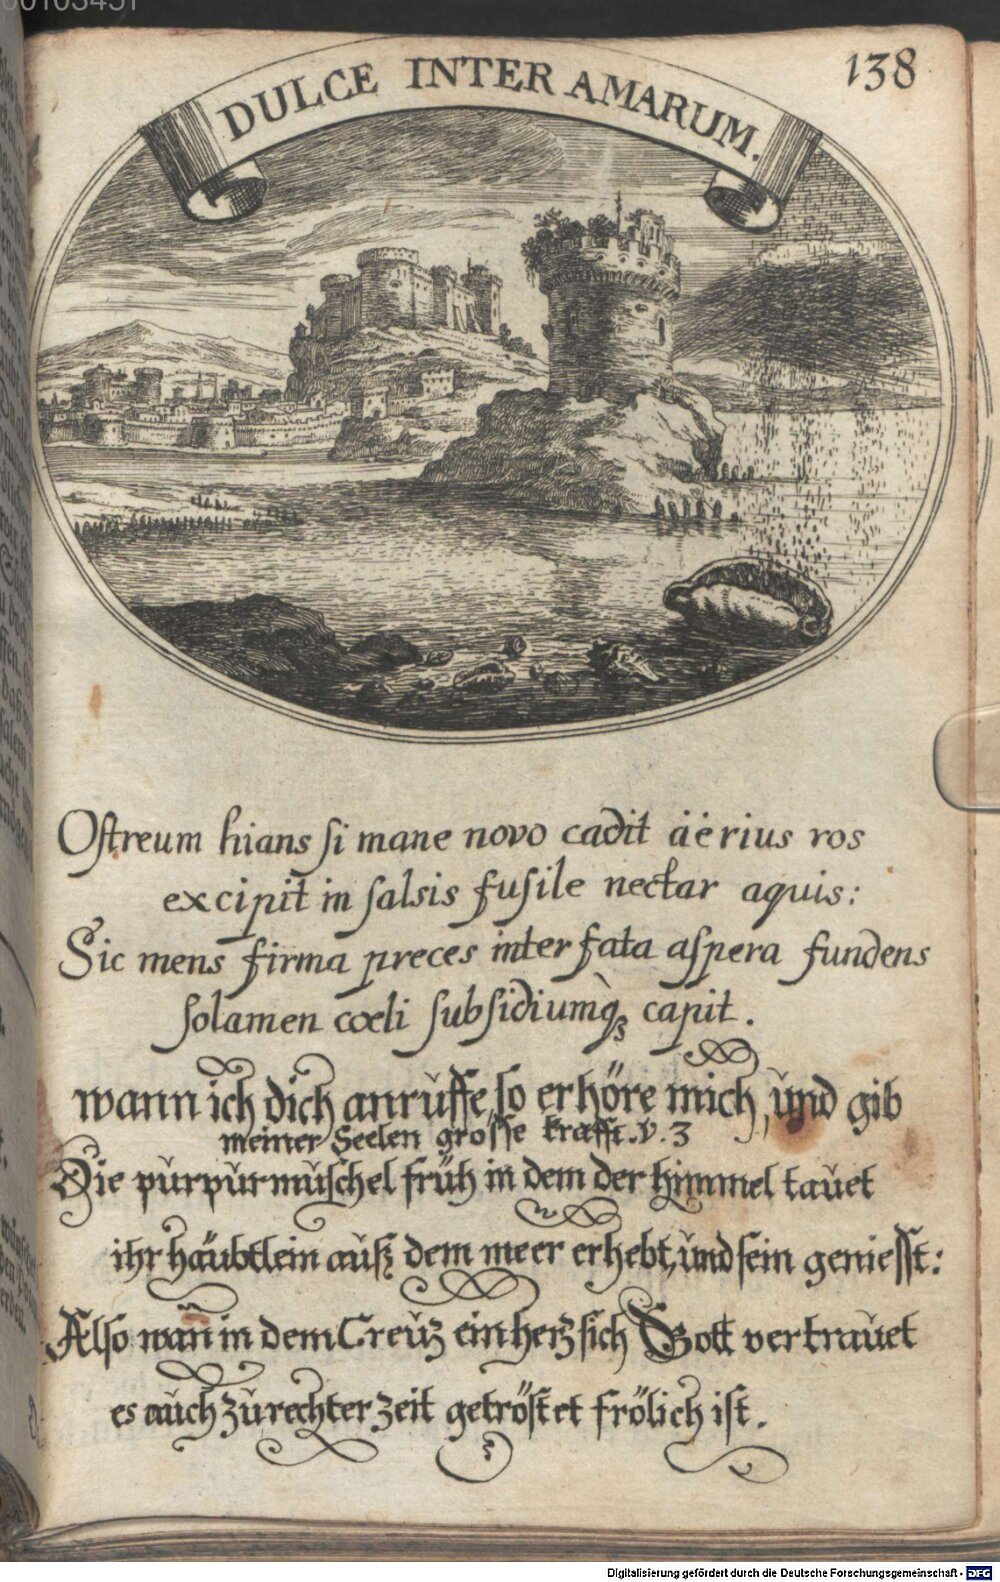 138
DULCE INTER AMARUM.
Ostreum hians si mane novo cadit äërius ros
excipit in salsis fusile nectar aquis:
Sic mens firma preces inter fata aspera fundens
solamen cœli subsidiumq̀ꝫ capit.
wann ich dich anruffe, so erhöre mich, und gib
meiner Seelen grosse krafft. v. 3
Die purpurmuschel früh in dem der himmel tauet
ihr häubtlein auß dem meer erhebt, und sein geniesst:
Also wan̄ in dem Creutz ein hertz sich Gott vertrauet
es auch zu rechter zeit getröstet frölich ist.
Digitalisierung gefördert durch die Deutsche Forschungsgemeinschaft - DFG